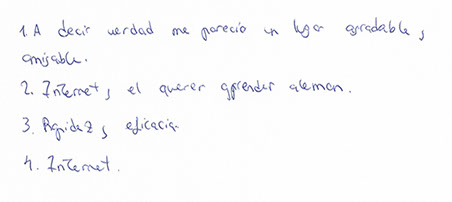 1. A decir verdad me pareció un lugar agradable y
amigable.
2. Internet y el querer aprender aleman.
3. Rapidez y eficacia.
4. Internet.